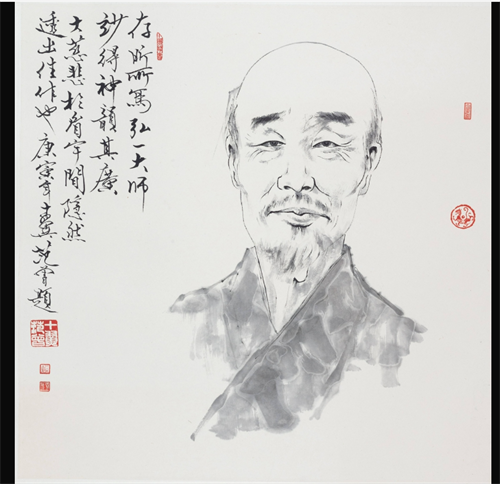 存昕所寫弘一大師
妙得神韻其廣
大慈悲於眉宇間隱然
透出佳作也庚寅年十翼范曾題